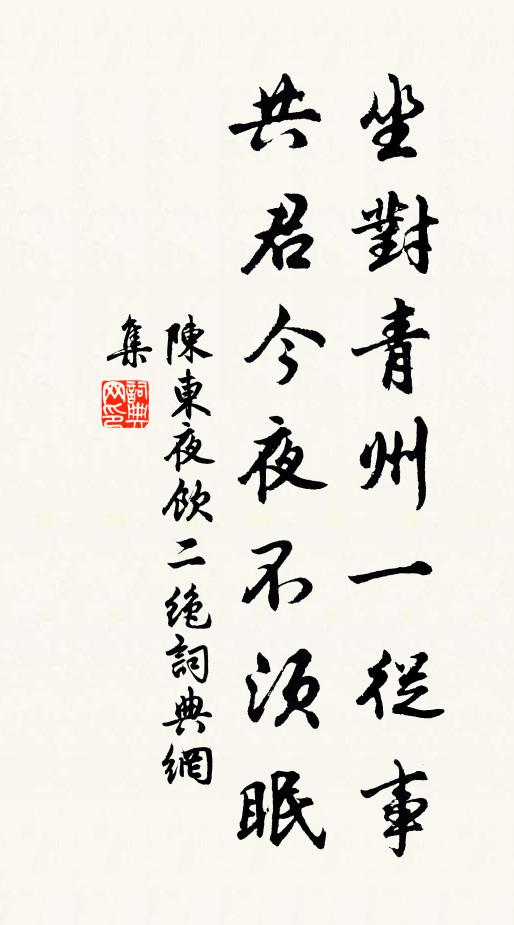 坐對青州一從事
共君今夜不須眠
陳東夜飲二絶詞典網
集
詞典
网印